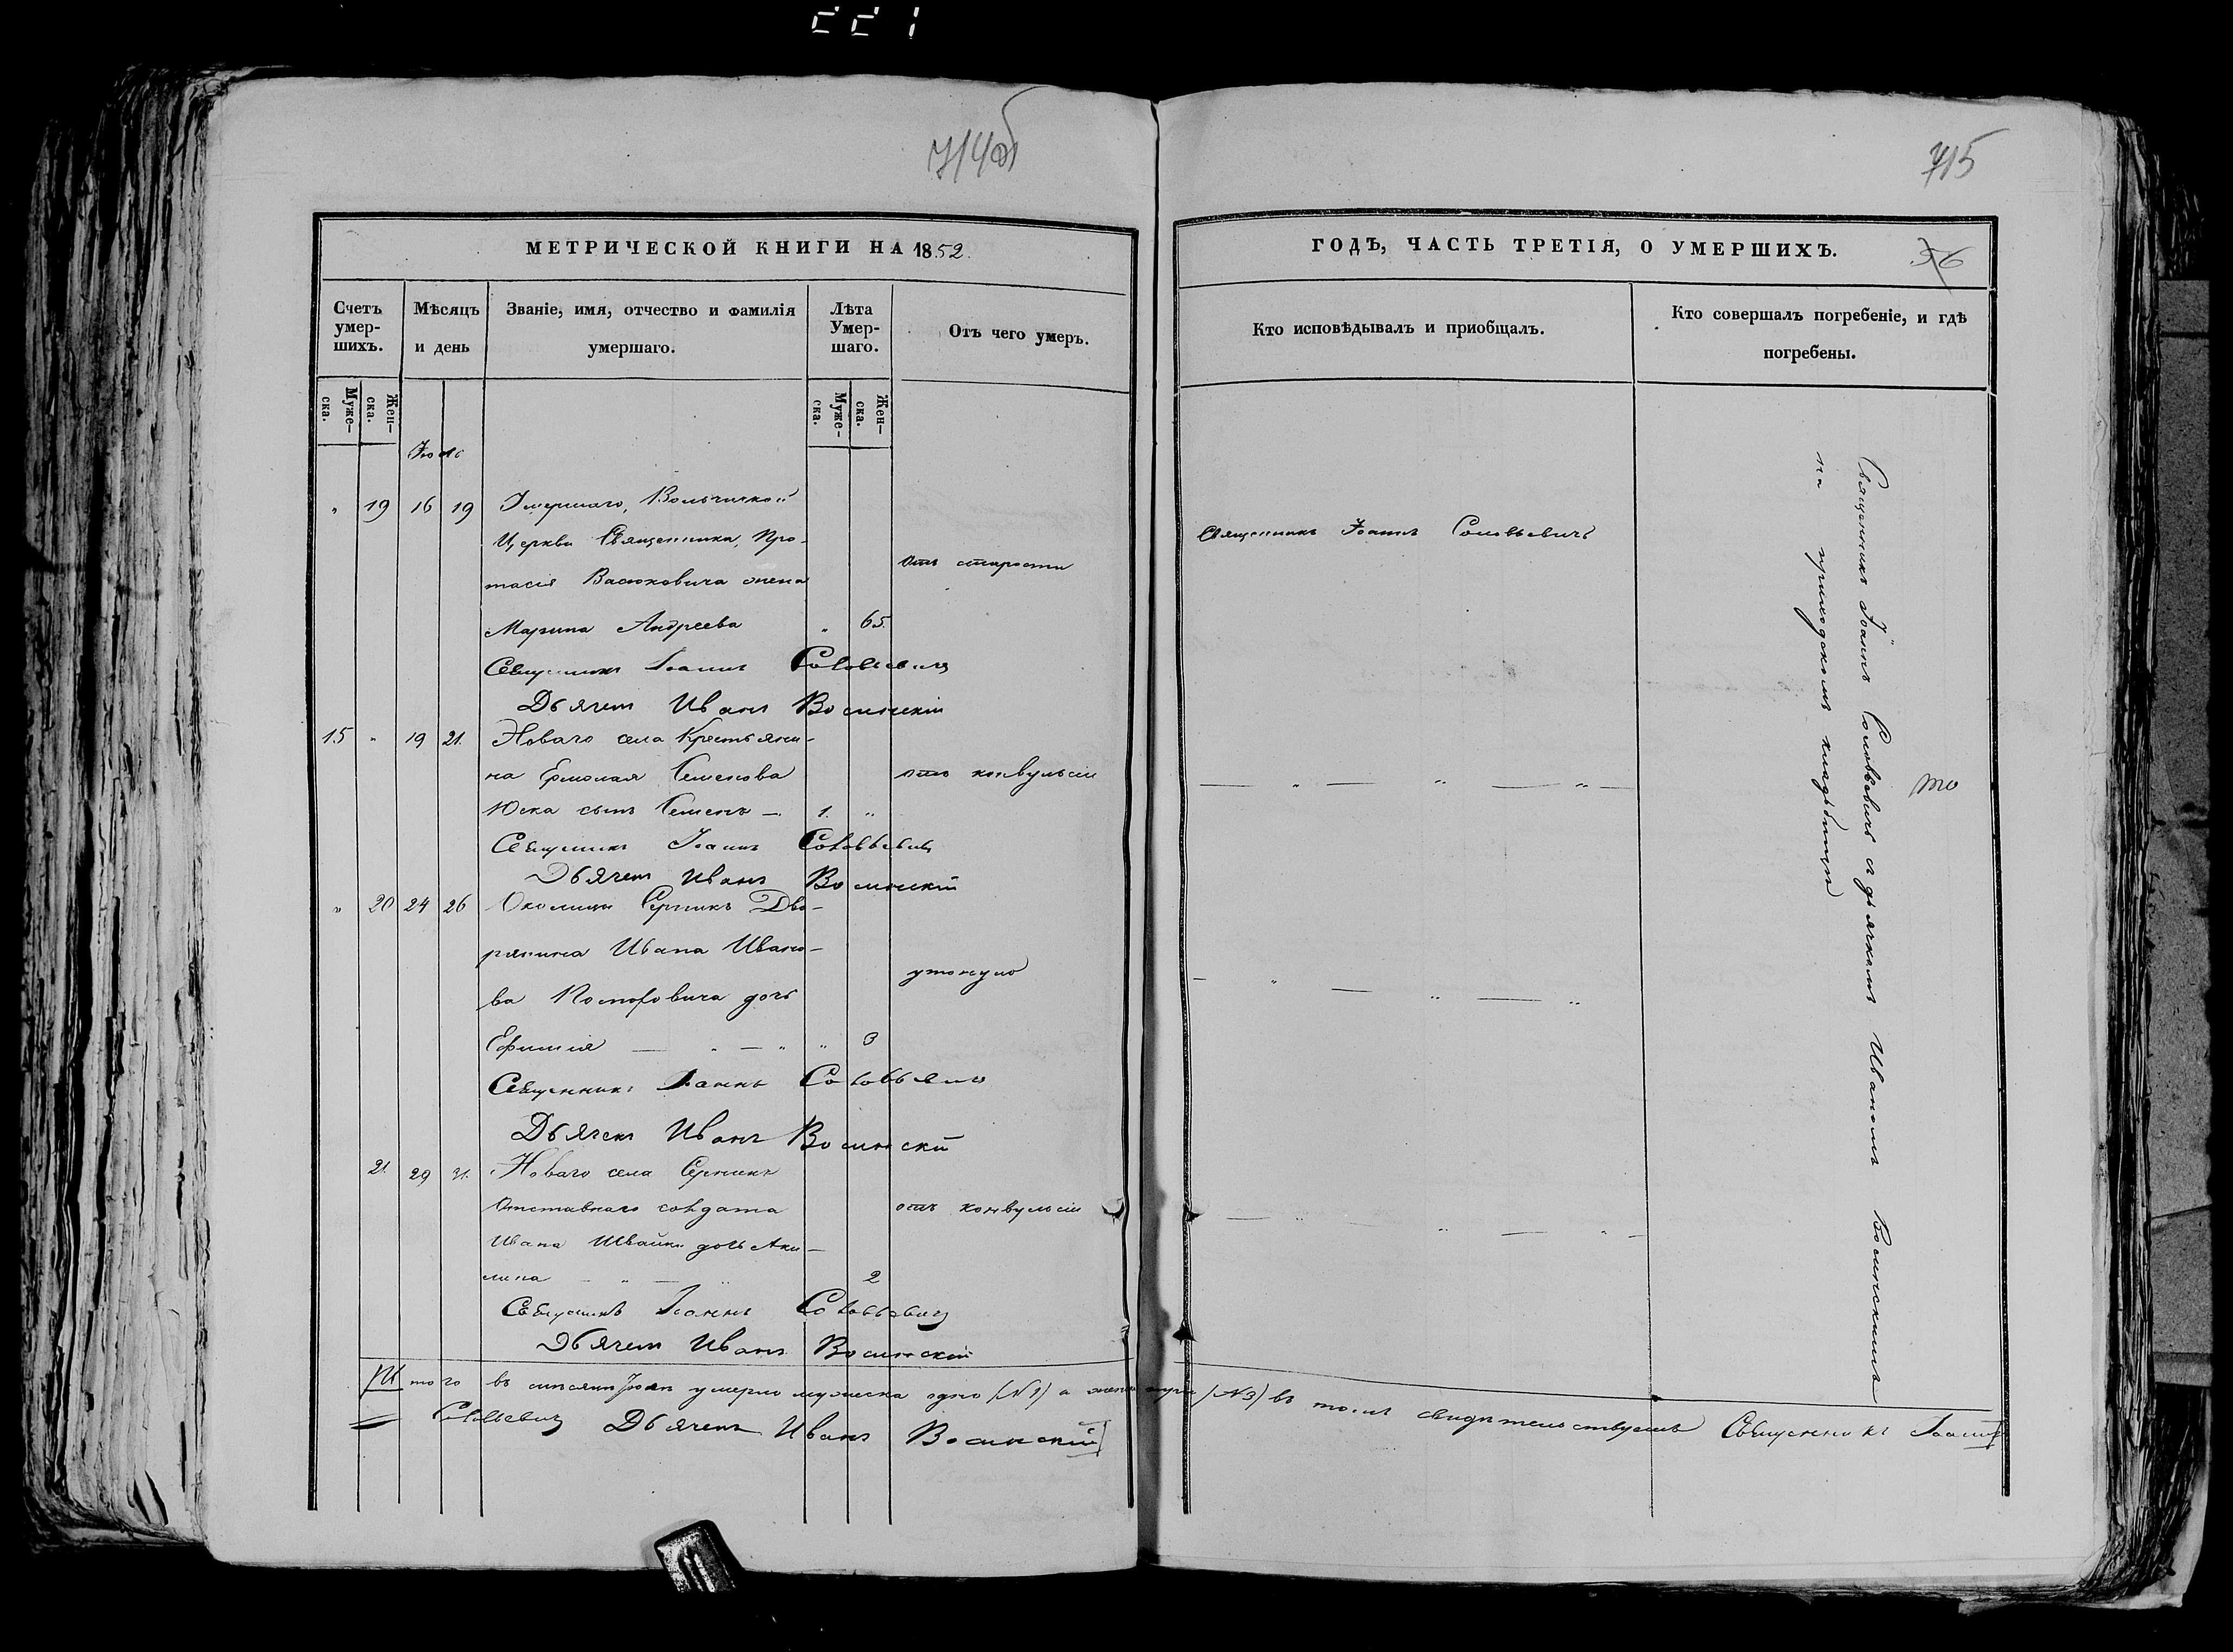 714об
715
МЕТРИЧЕСКОЙ КНИГИ НА 1852.
Счетъ умер-шихъ.
Мѣсяцъ и день
Званіе, имя, отчество и фамилія умершаго.
Лѣта Умер-шаго.
Отъ чего умеръ.
Муже-ска.
Жен-ска.
Муже-ска.
Жен-ска.
" 19 16 19 Умершаго,
Церкви Священника, Про-
тасія Васюковича жена
отъ старости
Марина Андреева " 65.
Священникъ Іоаннъ Соловьевичъ
Дьячекъ Иванъ Волинскій
15 " 19 21. Новаго села Крестьяни-
на Ермолая Семенова отъ конвульсіи
Юска сынъ Семенъ — 1. "
Священникъ Іоаннъ Соловьевичъ
Дьячекъ Иванъ Волинскій
" 20 24 26 Околицы Серникъ Дво-
рянина Ивана Ивано-
утонула
ва дочь
Ефимія — " — " " 3
Священникъ Іоаннъ Соловьевичъ
Дьячекъ Иванъ Волинскій
21 29 31. Новаго села Серникъ
Отставнаго солдата отъ конвульсіи
Ивана Швайки дочь Аки-
лина — " — " 2
Священникъ Іоаннъ Соловьевичъ
Дьячекъ Иванъ Волинскій
ГОДЪ, ЧАСТЬ ТРЕТІЯ, О УМЕРШИХЪ.
56
Кто исповѣдывалъ и приобщалъ.
Кто совершалъ погребеніе, и гдѣ погребены.
Священникъ Іоаннъ Соловьевичъ
Священникъ Іоаннъ Соловьевичъ съ дьячкомъ Иваномъ Волинскимъ
на приходскомъ кладбищи
Итого въ мѣсяцѣ умерло мужеска одно (№1) а женска три (№3) въ томъ свидѣтельствуемъ Священникъ Іоаннъ
Соловьевичъ Дьячекъ Иванъ Волинскій